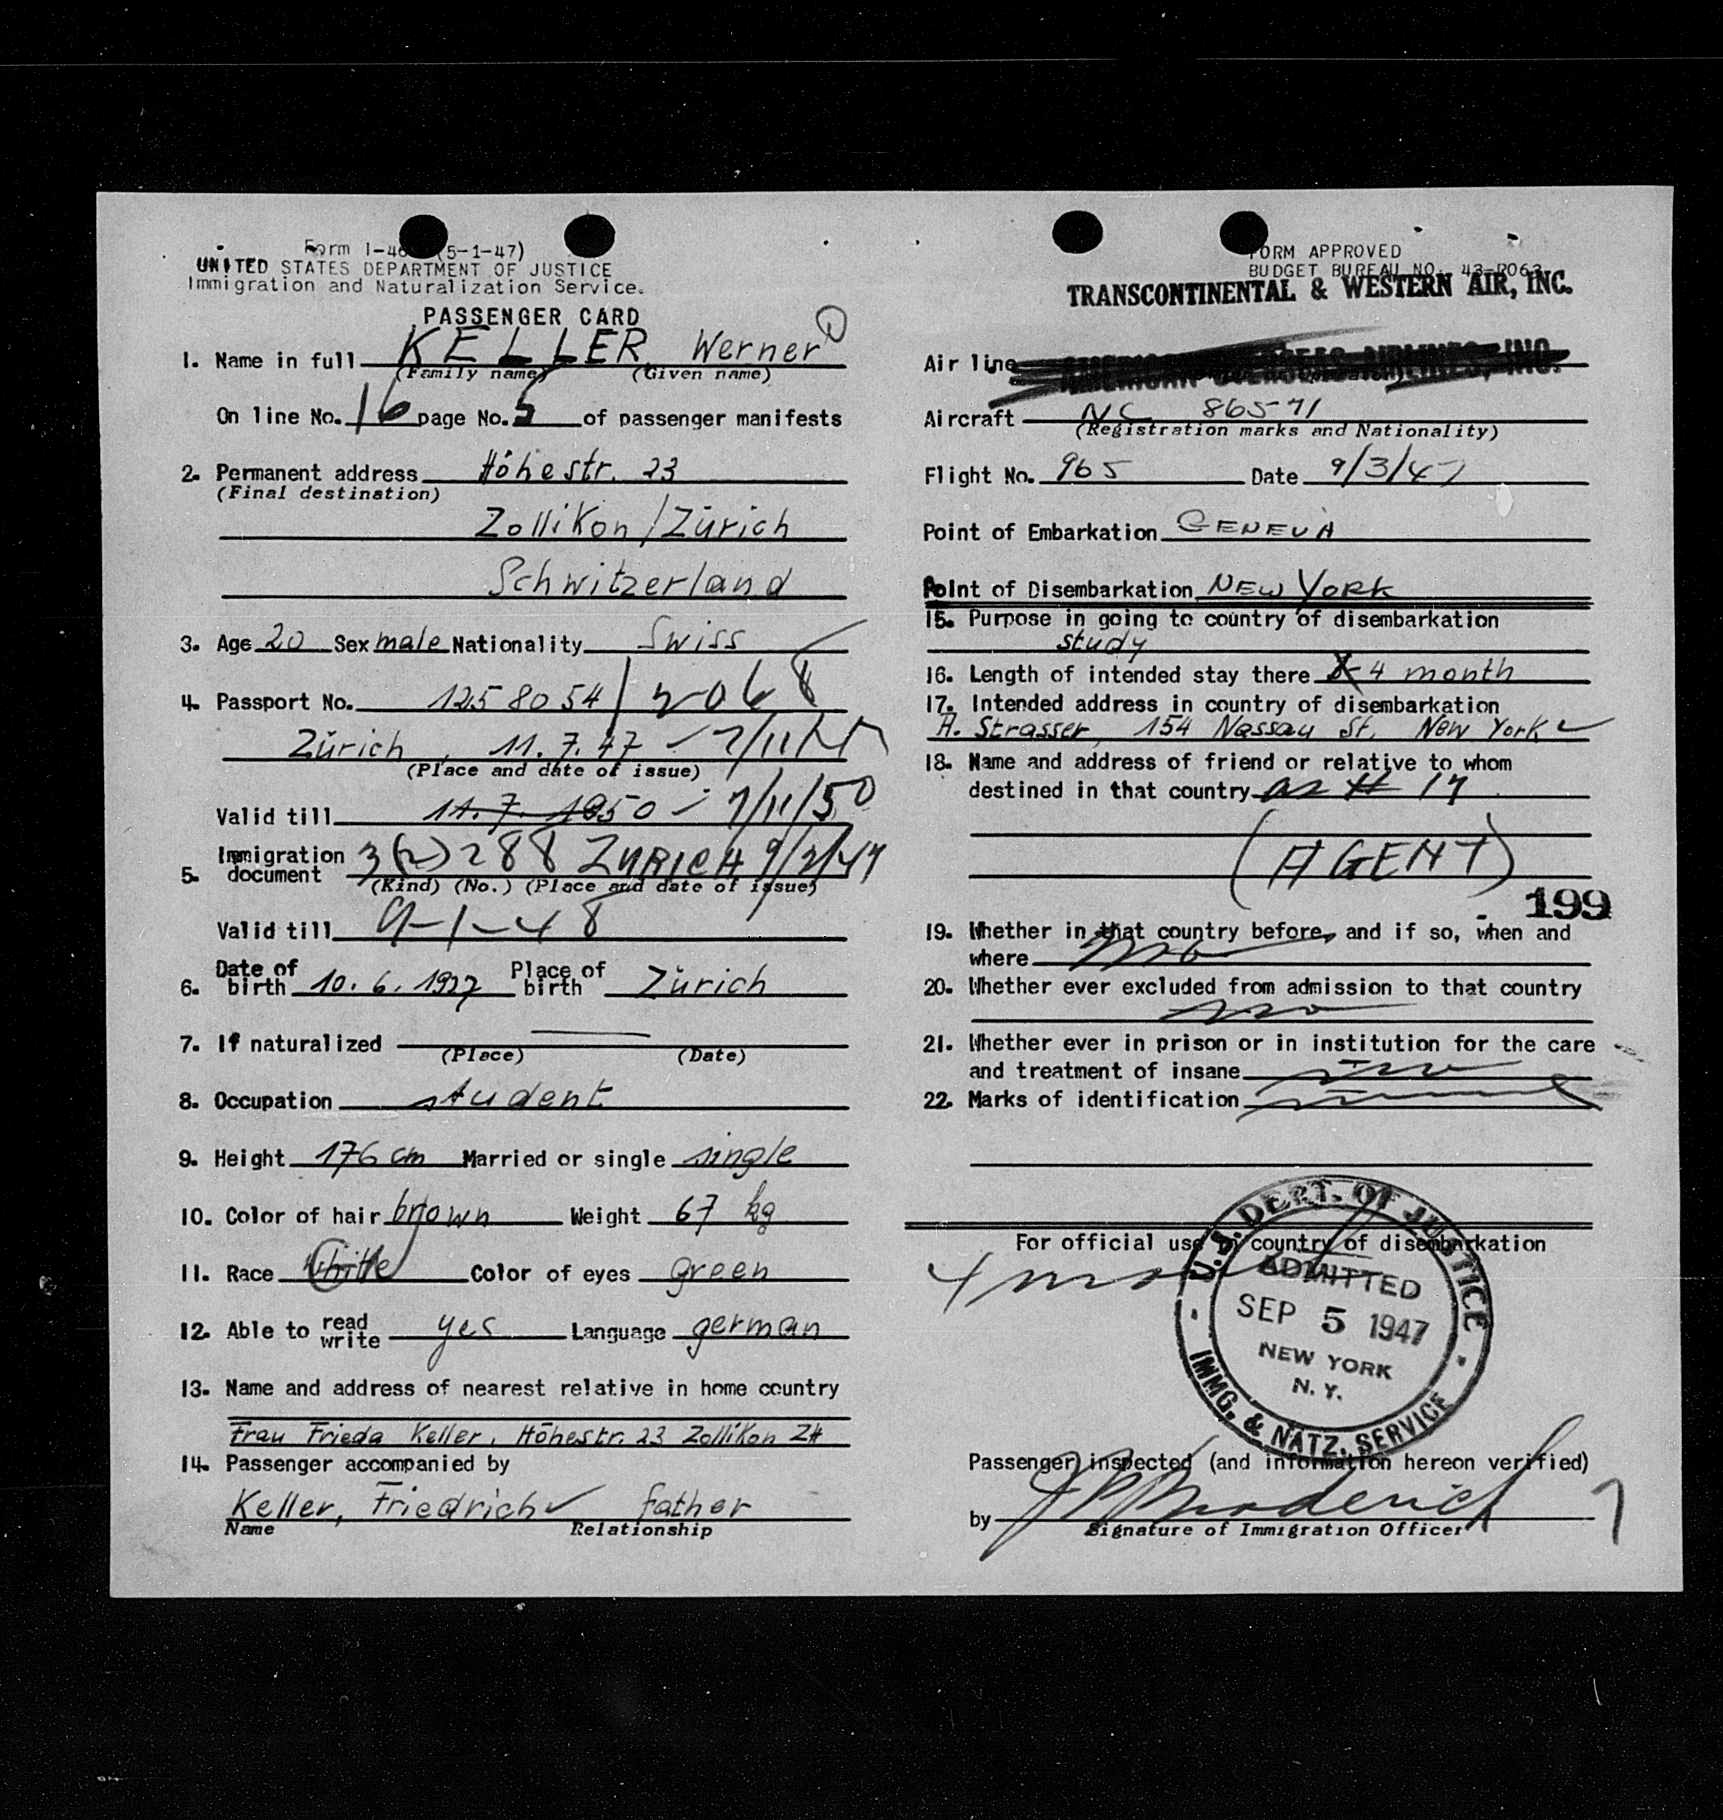 Form I-46 (5-1-47)
UNITED STATES DEPARTMENT OF JUSTICE
Immigration and Naturalization Service.
PASSENGER CARD
1. Name in full KELLER, Werner
(Family name) (Given name)
On line No. 16 page No. 5 of passenger manifests
2. Permanent address Höhestr. 23
(Final destination)
Zollikon/Zürich
Schwitzerland
3. Age 20 Sex male Nationality Swiss
4. Passport No. 1258054/2068
Zürich, 11.7.47 - 7/11/47
(Place and date of issue)
Valid till 11.7.1950 - 7/11/50
5. Immigration document 3(2) 288 ZURICH 9/2/47
(Kind) (No.) (Place and date of issue)
Valid till 9-1-48
6. Date of birth 10.6.1927 Place of birth Zürich
7. If naturalized —
(Place) (Date)
8. Occupation student
9. Height 176 cm Married or single single
10. Color of hair brown Weight 67 kg
11. Race White Color of eyes green
12. Able to read write yes Language german
13. Name and address of nearest relative in home country
Frau Frieda Keller, Höhestr. 23 Zollikon ZH
14. Passenger accompanied by
Keller, Friedrich father
Name Relationship
FORM APPROVED
BUDGET BUREAU NO. 43-R063
TRANSCONTINENTAL & WESTERN AIR, INC.
Air line AMERICAN OVERSEAS AIRLINES, INC.
Aircraft NC 86571
(Registration marks and Nationality)
Flight No. 965 Date 9/3/47
Point of Embarkation GENEVA
Point of Disembarkation NEW YORK
15. Purpose in going to country of disembarkation
study
16. Length of intended stay there 4 month
17. Intended address in country of disembarkation
A. Strasser, 154 Nassau St. New York
18. Name and address of friend or relative to whom
destined in that country as # 17
(AGENT)
199
19. Whether in that country before, and if so, when and
where no
20. Whether ever excluded from admission to that country
no
21. Whether ever in prison or in institution for the care
and treatment of insane no
22. Marks of identification
For official use by country of disembarkation
4 mos
U.S. DEPT. OF JUSTICE
ADMITTED
SEP 5 1947
NEW YORK
N. Y.
IMMG. & NATZ. SERVICE
Passenger inspected (and information hereon verified)
by
Signature of Immigration Officer